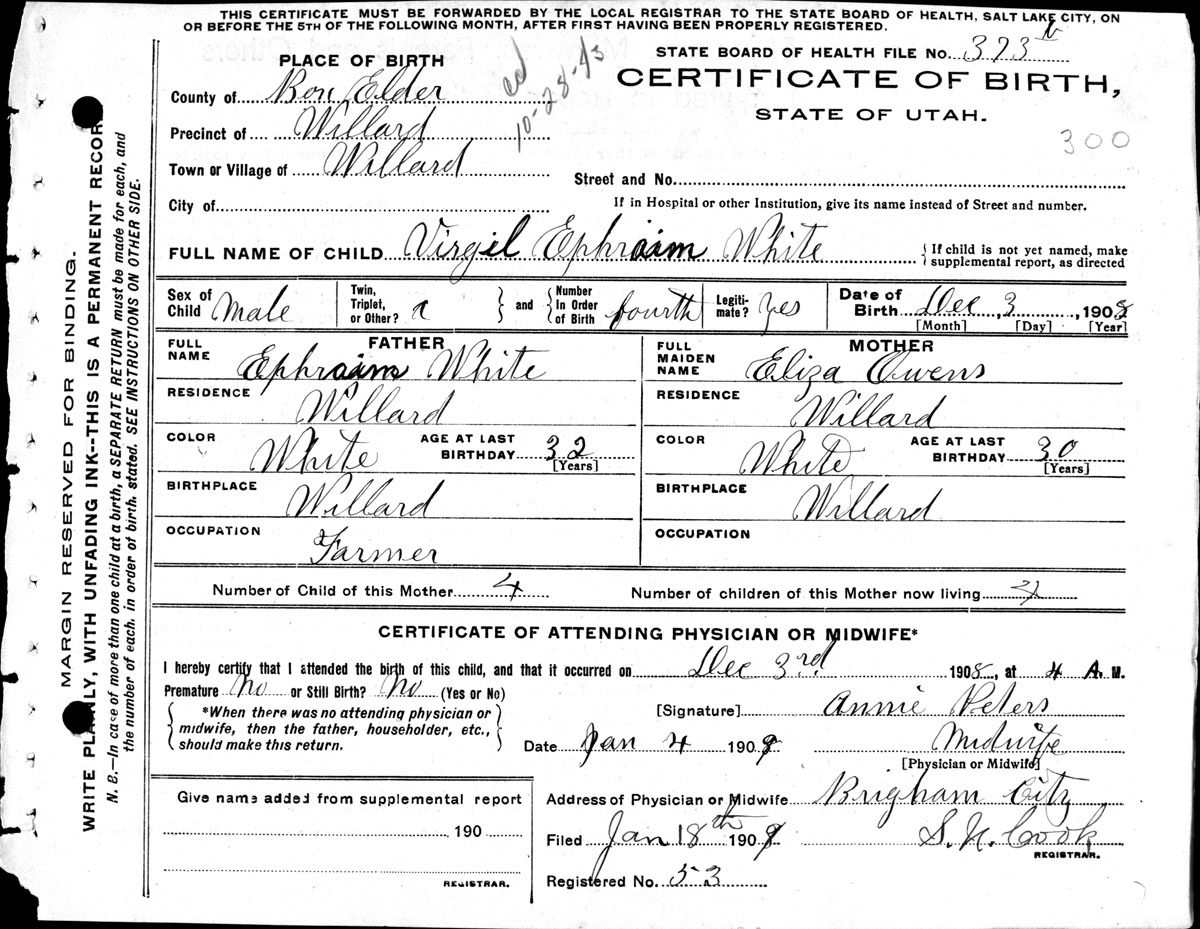 THIS CERTIFICATE MUST BE FORWARDED BY THE LOCAL REGISTRAR TO THE STATE BOARD OF HEALTH, SALT LAKE CITY, ON
OR BEFORE THE 5TH OF THE FOLLOWING MONTH, AFTER FIRST HAVING BEEN PROPERLY REGISTERED.
STATE BOARD OF HEALTH FILE No. 373th
CERTIFICATE OF BIRTH,
STATE OF UTAH.
300
PLACE OF BIRTH
10-28-43
County of Box Elder
Precinct of Willard
Town or Village of Willard
Street and No.
City of
If in Hospital or other Institution, give its name instead of Street and number.
FULL NAME OF CHILD Virgil Ephraim White { If child is not yet named, make supplemental report, as directed
Sex of Child Male
Twin, Triplet, or Other? and Number In Order of Birth fourth
Legitimate? Yes
Date of Birth Dec 3, 1908
[Month] [Day] [Year]
FATHER
FULL NAME Ephraim White
RESIDENCE Willard
COLOR White AGE AT LAST BIRTHDAY 32 [Years]
BIRTHPLACE Willard
OCCUPATION Farmer
MOTHER
FULL MAIDEN NAME Eliza Owens
RESIDENCE Willard
COLOR White AGE AT LAST BIRTHDAY 30 [Years]
BIRTHPLACE Willard
OCCUPATION
Number of Child of this Mother 4 Number of children of this Mother now living 4
CERTIFICATE OF ATTENDING PHYSICIAN OR MIDWIFE*
I hereby certify that I attended the birth of this child, and that it occurred on Dec 3rd 1908, at 4 A. M.
Premature No or Still Birth? No (Yes or No)
*When there was no attending physician or
midwife, then the father, householder, etc.,
should make this return.
[Signature] Annie Peters
Date Jan 4 1909 Midwife
[Physician or Midwife]
Give name added from supplemental report
190
REGISTRAR.
Address of Physician or Midwife Brigham City
Filed Jan 18th 1909 S. N. Cook
REGISTRAR.
Registered No. 53
MARGIN RESERVED FOR BINDING.
WRITE PLAINLY, WITH UNFADING INK--THIS IS A PERMANENT RECORD
N. B.—In case of more than one child at a birth, a SEPARATE RETURN must be made for each, and
the number of each, in order of birth, stated. SEE INSTRUCTIONS ON OTHER SIDE.